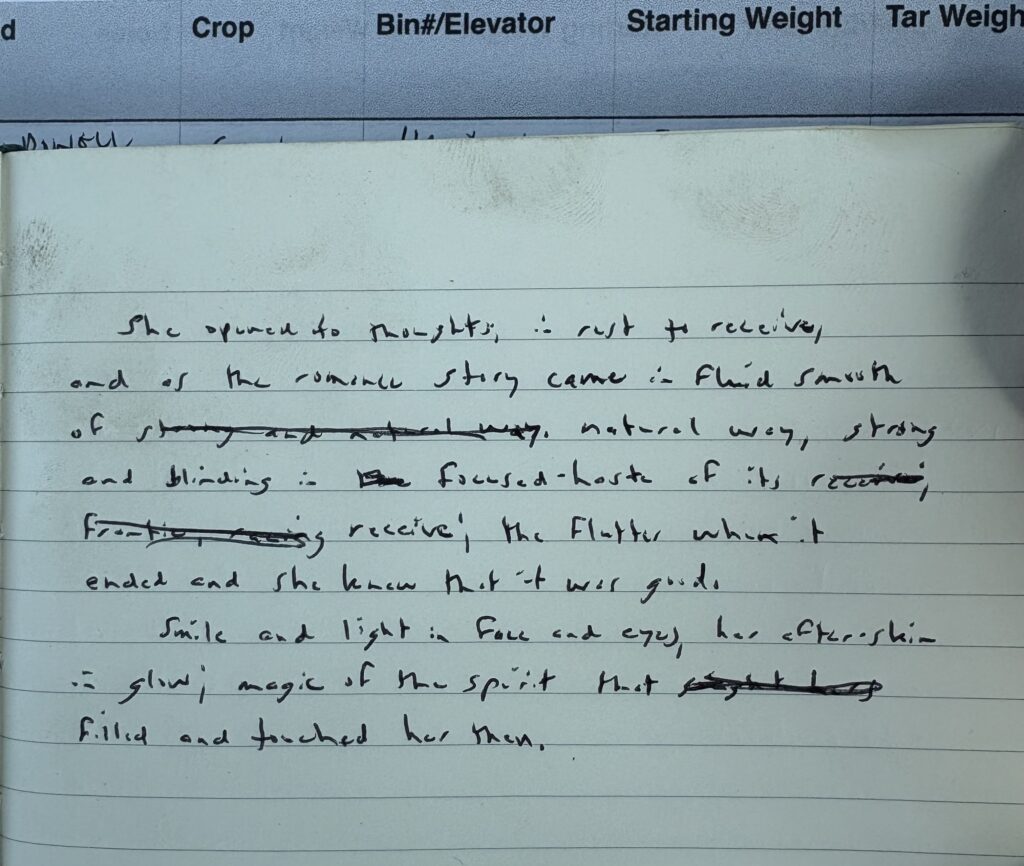 d Crop Bin#/Elevator Starting Weight Tar Weigh
She opened to thoughts, in rest to receive,
and as the romance story came in fluid smooth
of strong and natural way. natural way, strong
and blinding in focused-haste of its receive;
receive; the flutter when it
ended and she knew that it was good.
Smile and light in face and eyes, her after-skin
in glow; magic of the spirit that
filled and touched her then.